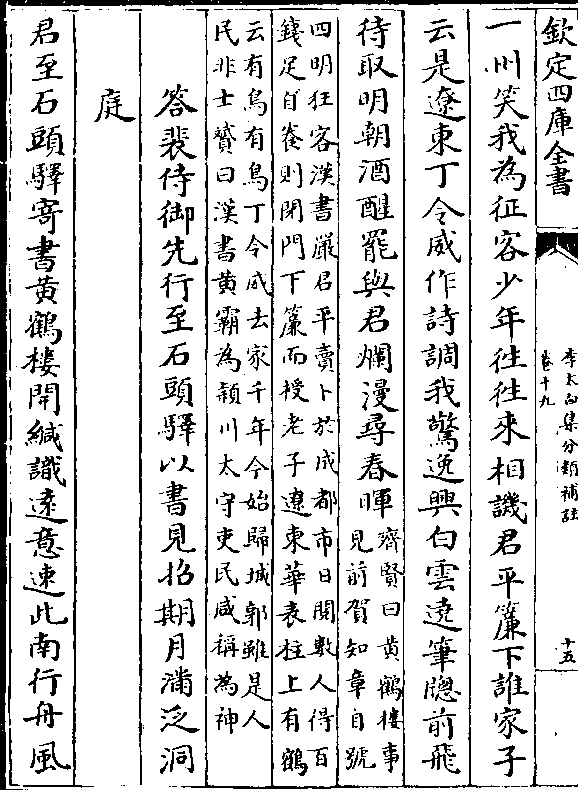 欽定四庫全書
李太白集分類補註
卷十九
十五
一州笑我為征客少年往往來相譏君平簾下誰家子
云是遼東丁令威作詩調我驚逸興白雲遶筆牕前飛
待取明朝酒醒罷與君爛漫尋春暉
齊賢曰黄鶴樓事
見前賀知章自號
四明狂客漢書嚴君平賣卜於成都市日閲數人得百
錢足自養則閉門下簾而授老子遼東華表柱上有鶴
云有鳥有鳥丁令威去家千年今始歸城郭雖是人
民非士贇曰漢書黄霸為潁川太守吏民咸稱為神
答裴侍御先行至石頭驛以書見招期月滿泛洞
庭
君至石頭驛寄書黄鶴樓開緘識遠意速此南行舟風